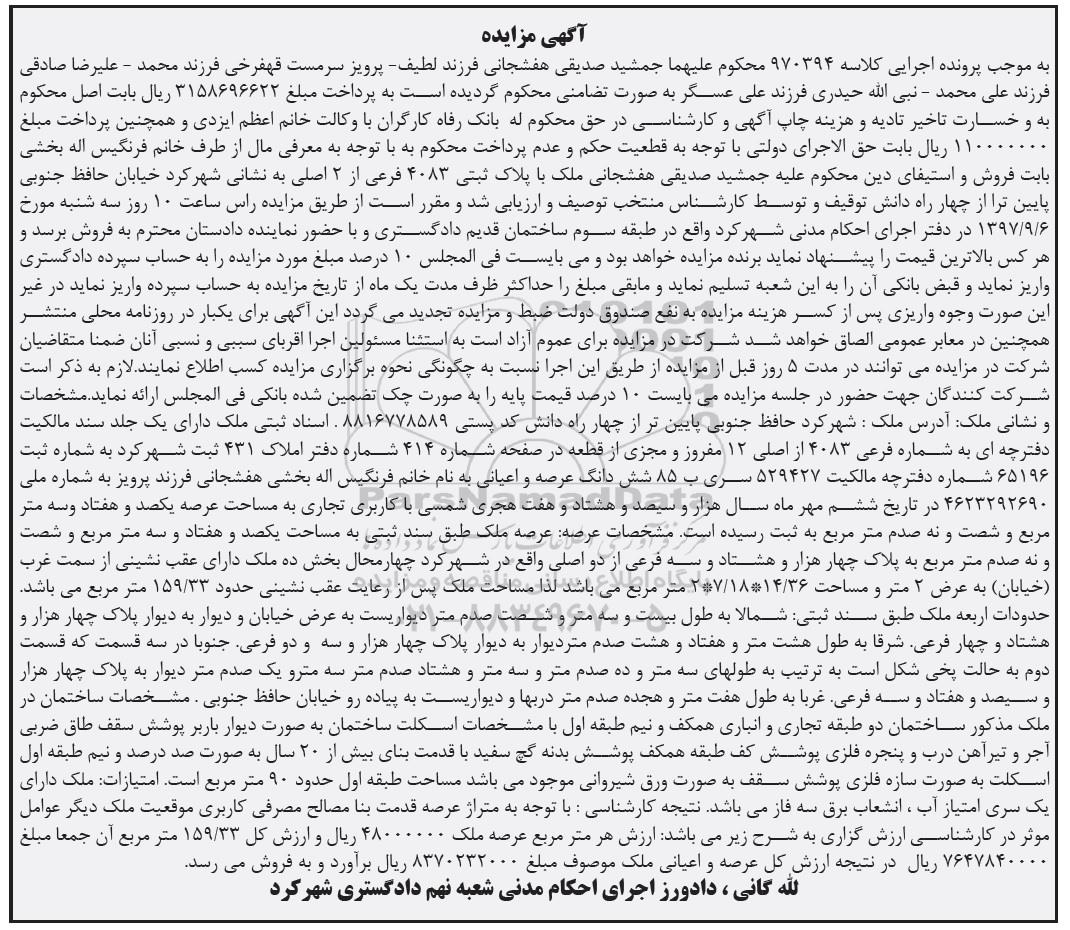 آگهی مزایده
به موجب پرونده اجرایی کلاسه ۹۷۰۳۹۴ محکوم علیهما جمشید صدیقی هفشجانی فرزند لطیف- پرویز سرمست قهفرخی فرزند محمد - علیرضا صادقی
فرزند علی محمد - نبی الله حیدری فرزند علی عسگر به صورت تضامنی محکوم گردیده است به پرداخت مبلغ ۳۱۵۸۶۹۶۶۲۲ ریال بابت اصل محکوم
به و خسارت تاخیر تادیه و هزینه چاپ آگهی و کارشناسی در حق محکوم له بانک رفاه کارگران با وکالت خانم اعظم ایزدی و همچنین پرداخت مبلغ
۱۱۰۰۰۰۰۰۰ ریال بابت حق الاجرای دولتی با توجه به قطعیت حکم و عدم پرداخت محکوم به با توجه به معرفی مال از طرف خانم فرنگیس اله بخشی
بابت فروش و استیفای دین محکوم علیه جمشید صدیقی هفشجانی ملک با پلاک ثبتی ۴۰۸۳ فرعی از ۲ اصلی به نشانی شهرکرد خیابان حافظ جنوبی
پایین ترا از چهار راه دانش توقیف و توسط کارشناس منتخب توصیف و ارزیابی شد و مقرر است از طریق مزایده راس ساعت ۱۰ روز سه شنبه مورخ
۱۳۹۷/۹/۶ در دفتر اجرای احکام مدنی شهرکرد واقع در طبقه سوم ساختمان قدیم دادگستری و با حضور نماینده دادستان محترم به فروش برسد و
هر کس بالاترین قیمت را پیشنهاد نماید برنده مزایده خواهد بود و می بایست فی المجلس ۱۰ درصد مبلغ مورد مزایده را به حساب سپرده دادگستری
واریز نماید و قبض بانکی آن را به این شعبه تسلیم نماید و مابقی مبلغ را حداکثر ظرف مدت یک ماه از تاریخ مزایده به حساب سپرده واریز نماید در غیر
این صورت وجوه واریزی پس از کسر هزینه مزایده به نفع صندوق دولت ضبط و مزایده تجدید می گردد این آگهی برای یکبار در روزنامه محلی منتشر
همچنین در معابر عمومی الصاق خواهد شد شرکت در مزایده برای عموم آزاد است به استثنا مسئولین اجرا اقربای سببی و نسبی آنان ضمنا متقاضیان
شرکت در مزایده می توانند در مدت ۵ روز قبل از مزایده از طریق این اجرا نسبت به چگونگی نحوه برگزاری مزایده کسب اطلاع نمایند.لازم به ذکر است
شرکت کنندگان جهت حضور در جلسه مزایده می بایست ۱۰ درصد قیمت پایه را به صورت چک تضمین شده بانکی فی المجلس ارائه نماید.مشخصات
و نشانی ملک: آدرس ملک : شهرکرد حافظ جنوبی پایین تر از چهار راه دانش کد پستی ۸۸۱۶۷۷۸۵۸۹ . اسناد ثبتی ملک دارای یک جلد سند مالکیت
دفترچه ای به شماره فرعی ۴۰۸۳ از اصلی ۱۲ مفروز و مجزی از قطعه در صفحه شماره ۴۱۴ شماره دفتر املاک ۴۳۱ ثبت شهرکرد به شماره ثبت
۶۵۱۹۶ شماره دفترچه مالکیت ۵۲۹۴۲۷ سری ب ۸۵ شش دانگ عرصه و اعیانی به نام خانم فرنگیس اله بخشی هفشجانی فرزند پرویز به شماره ملی
۴۶۲۳۲۹۲۶۹۰ در تاریخ ششم مهر ماه سال هزار و سیصد و هشتاد و هفت هجری شمسی با کاربری تجاری به مساحت عرصه یکصد و هفتاد وسه متر
مربع و شصت و نه صدم متر مربع به ثبت رسیده است. مشخصات عرصه: عرصه ملک طبق سند ثبتی به مساحت یکصد و هفتاد و سه متر مربع و شصت
و نه صدم متر مربع به پلاک چهار هزار و هشتاد و سه فرعی از دو اصلی واقع در شهرکرد چهارمحال بخش ده ملک دارای عقب نشینی از سمت غرب
(خیابان) به عرض ۲ متر و مساحت ۱۴/۳۶=۷/۱۸*۲ متر مربع می باشد لذا مساحت ملک پس از رعایت عقب نشینی حدود ۱۵۹/۳۳ متر مربع می باشد.
حدودات اربعه ملک طبق سند ثبتی: شمالا به طول بیست و سه متر و شصت صدم متر دیواریست به عرض خیابان و دیوار به دیوار پلاک چهار هزار و
هشتاد و چهار فرعی. شرقا به طول هشت متر و هفتاد و هشت صدم متردیوار به دیوار پلاک چهار هزار و سه و دو فرعی. جنوبا در سه قسمت که قسمت
دوم به حالت پخی شکل است به ترتیب به طولهای سه متر و ده صدم متر و سه متر و هشتاد صدم متر سه مترو یک صدم متر دیوار به پلاک چهار هزار
و سیصد و هفتاد و سه فرعی. غربا به طول هفت متر و هجده صدم متر دربها و دیواریست به پیاده رو خیابان حافظ جنوبی . مشخصات ساختمان در
ملک مذکور ساختمان دو طبقه تجاری و انباری همکف و نیم طبقه اول با مشخصات اسکلت ساختمان به صورت دیوار باربر پوشش سقف طاق ضربی
آجر و تیرآهن درب و پنجره فلزی پوشش کف طبقه همکف پوشش بدنه گچ سفید با قدمت بنای بیش از ۲۰ سال به صورت صد درصد و نیم طبقه اول
اسکلت به صورت سازه فلزی پوشش سقف به صورت ورق شیروانی موجود می باشد مساحت طبقه اول حدود ۹۰ متر مربع است. امتیازات: ملک دارای
یک سری امتیاز آب ، انشعاب برق سه فاز می باشد. نتیجه کارشناسی : با توجه به متراژ عرصه قدمت بنا مصالح مصرفی کاربری موقعیت ملک دیگر عوامل
موثر در کارشناسی ارزش گزاری به شرح زیر می باشد: ارزش هر متر مربع عرصه ملک ۴۸۰۰۰۰۰۰ ریال و ارزش کل ۱۵۹/۳۳ متر مربع آن جمعا مبلغ
۷۶۴۷۸۴۰۰۰۰ ریال در نتیجه ارزش کل عرصه و اعیانی ملک موصوف مبلغ ۸۳۷۰۲۳۲۰۰۰ ریال برآورد و به فروش می رسد.
لله گانی ، دادورز اجرای احکام مدنی شعبه نهم دادگستری شهرکرد
ParsNamadData
پایگاه اطلاع رسانی مناقصه و مزایده
۰۲۱-۸۸۳۴۹۶۷۰-۵